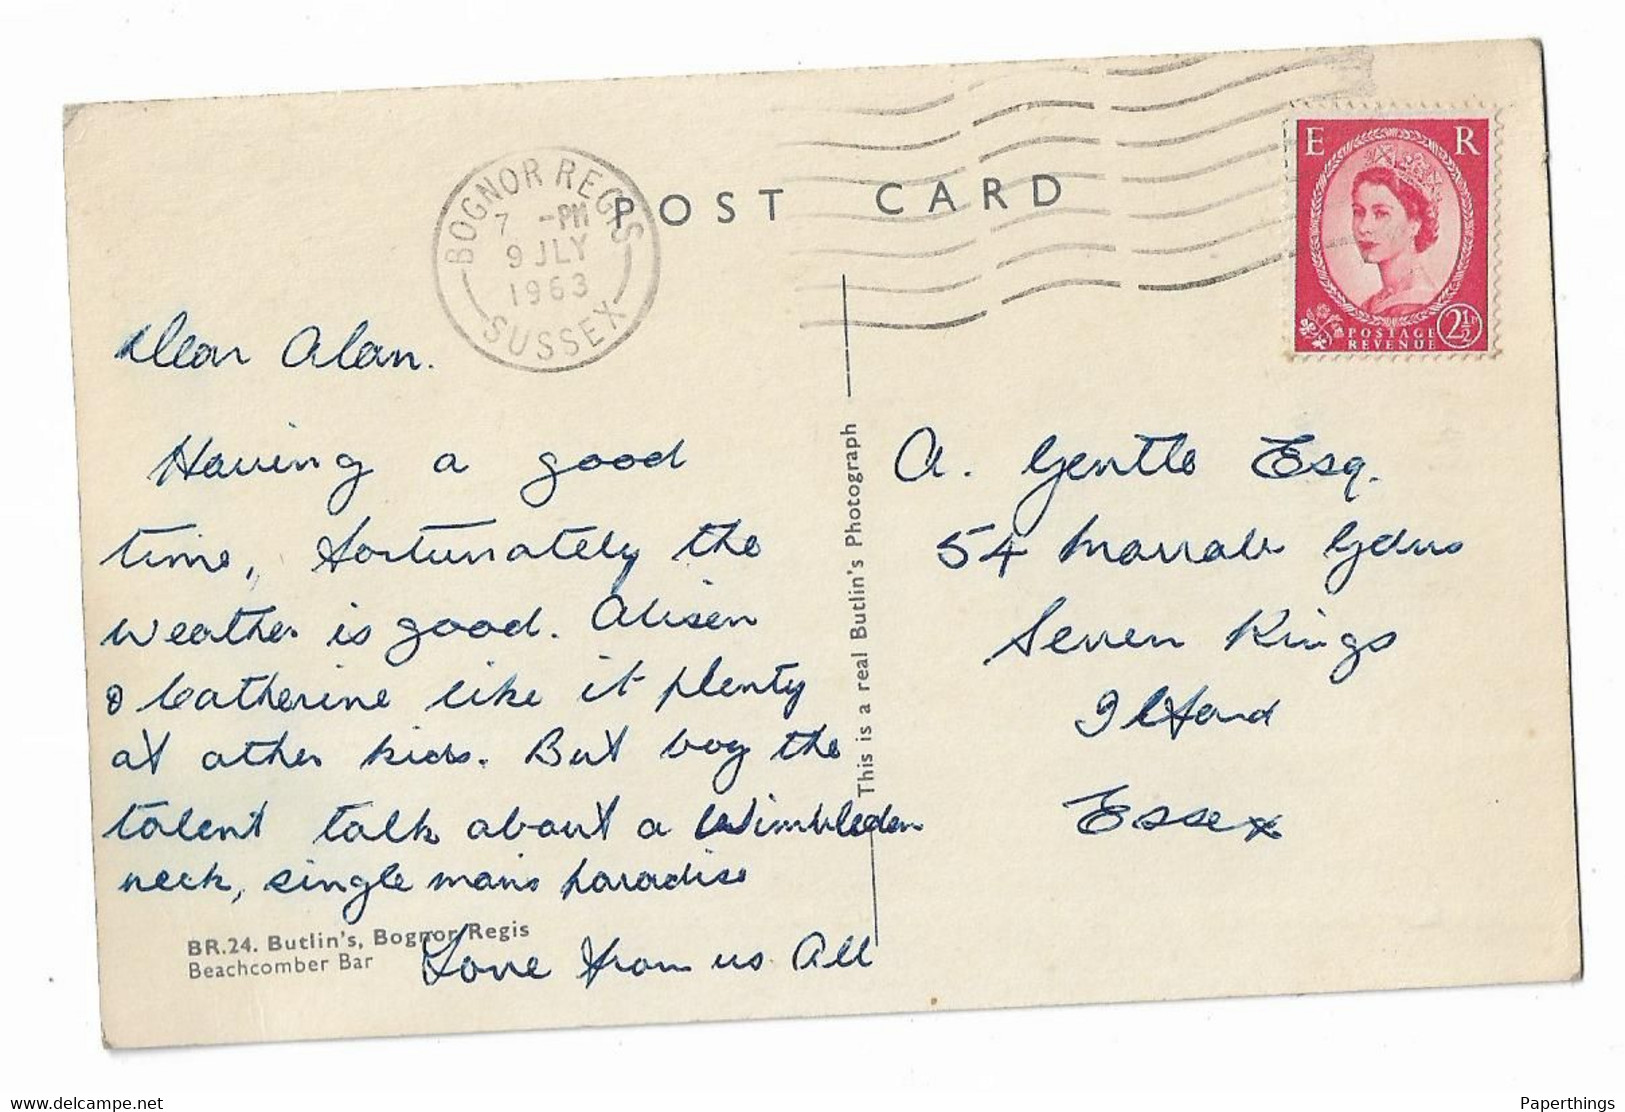 BOGNOR REGIS
7 -PM
9 JLY
1963
SUSSEX
POST CARD
E R
POSTAGE
REVENUE
2½D
Dear Alan.
Having a good
time, fortunately the
weather is good. Alison
& Catherine like it plenty
of other kids. But boy the
talent talk about a Wimbledon
neck, single mans paradise
Love from us All
BR.24. Butlin's, Bognor Regis
Beachcomber Bar
This is a real Butlin's Photograph
A. Gentle Esq.
54 Gdns
Seven Kings
Ilford
Essex
www.delcampe.net
Paperthings